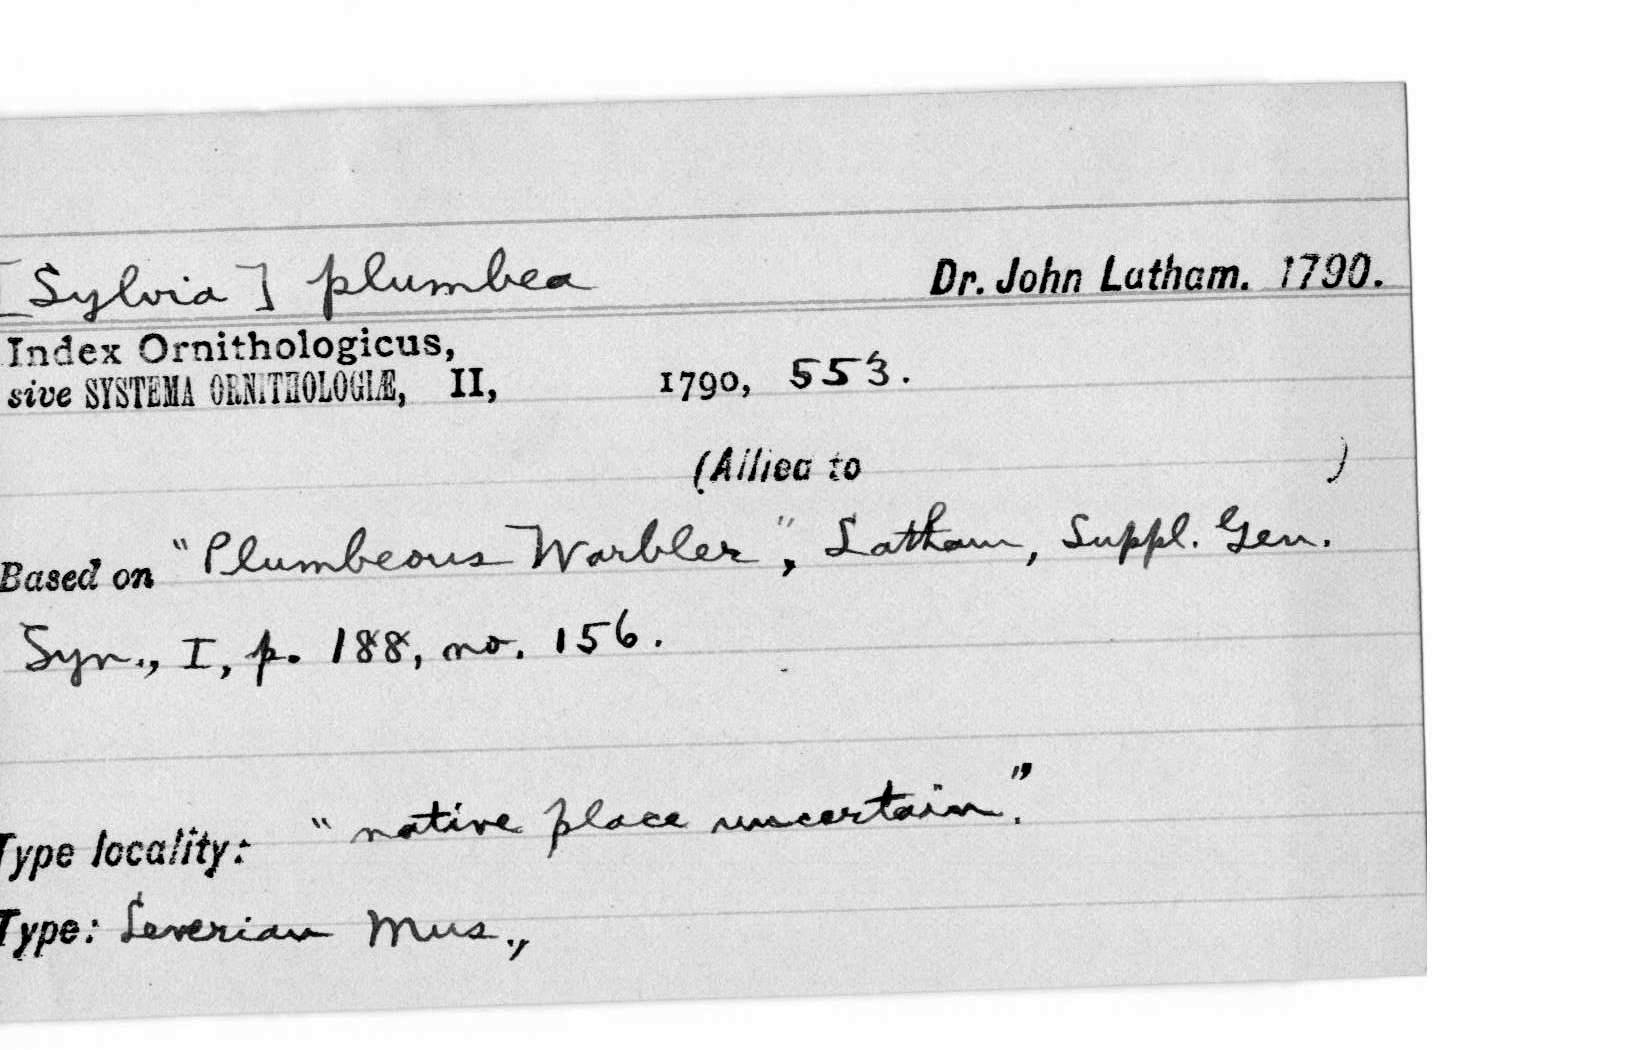 [Sylvia] plumbea Dr. John Latham. 1790.
Index Ornithologicus,
sive SYSTEMA ORNITHOLOGIÆ, II, 1790, 553.
(Allied to )
Based on "Plumbeous Warbler", Latham, Suppl. Gen.
Syn., I, p. 188, no. 156.
Type locality: "native place uncertain."
Type: Leverian Mus.,